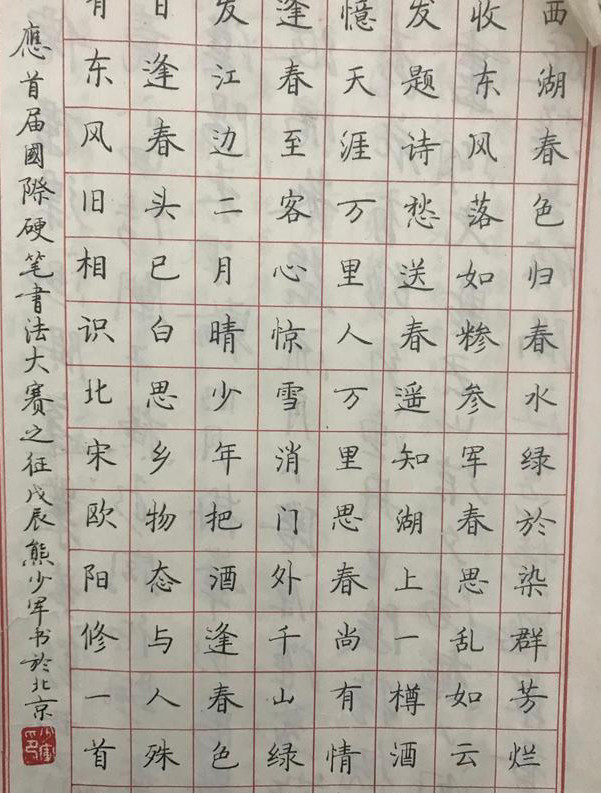 西湖春色归春水绿於染群芳烂
收东风落如糁参军春思乱如云
发题诗愁送春遥知湖上一樽酒
憶天涯万里人万里思春尚有情
逢春至客心惊雪消门外千山绿
发江边二月晴少年把酒逢春色
日逢春头已白思乡物态与人殊
有东风旧相识北宋欧阳修一首
應首届國際硬笔書法大赛之征戊辰熊少军书於北京